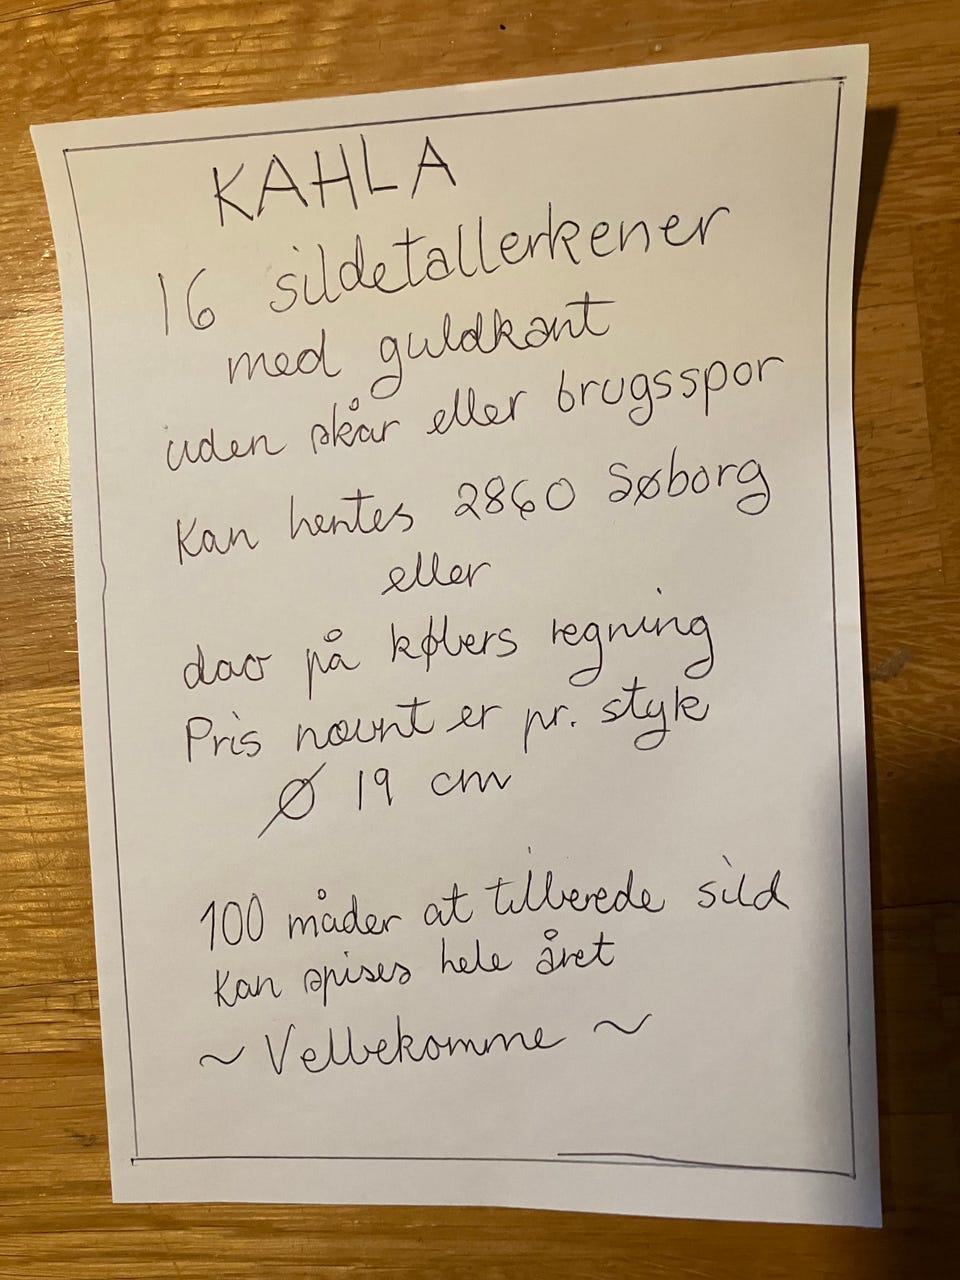 KAHLA
16 sildetallerkener
med guldkant
uden skår eller brugsspor
Kan hentes 2860 Søborg
eller
dao på købers regning
Pris nævnt er pr. styk
Ø 19 cm
100 måder at tilberede sild
Kan spises hele året
~ Velbekomme ~